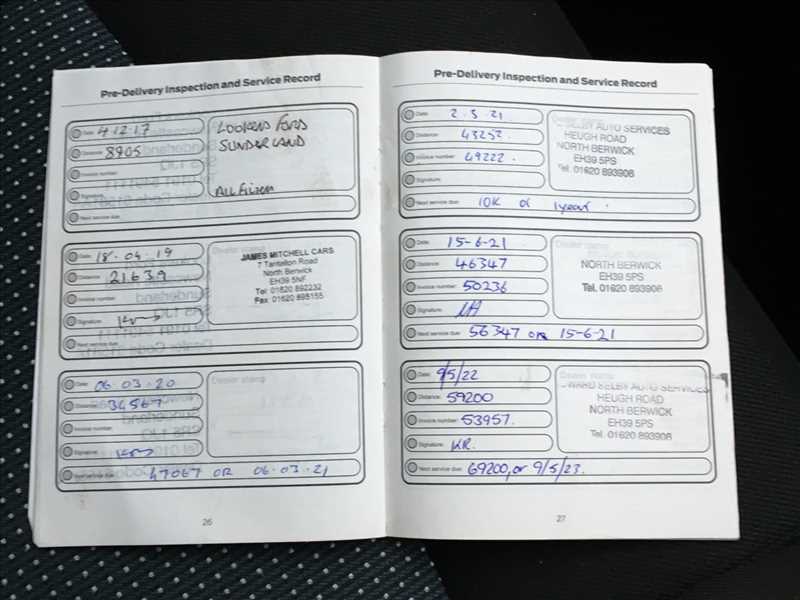 Pre-Delivery Inspection and Service Record
Date: 4.12.17
Distance: 8905
Invoice number:
Signature:
Next service due:
LOOKERS FORD
SUNDERLAND
All Filters
Date: 18-04-19
Distance: 21639
Invoice number:
Signature:
Next service due:
Dealer stamp
JAMES MITCHELL CARS
7 Tantallon Road
North Berwick
EH39 5NF
Tel: 01620 892232
Fax: 01620 895155
Date: 06.03.20
Distance: 34567
Invoice number:
Signature:
Next service due: 47067 OR 06.03.21
Dealer stamp
26
Pre-Delivery Inspection and Service Record
Date: 2.3.21
Distance: 43252
Invoice number: 49222.
Signature:
Next service due: 10K or 1year.
SELBY AUTO SERVICES
HEUGH ROAD
NORTH BERWICK
EH39 5PS
Tel. 01620 893906
Date: 15-6-21
Distance: 46347
Invoice number: 50236
Signature:
Next service due: 56347 OR 15-6-21
Dealer stamp
NORTH BERWICK
EH39 5PS
Tel. 01620 893906
Date: 9/5/22
Distance: 59200
Invoice number: 53957.
Signature: KR.
Next service due: 69200, or 9/5/23.
Dealer stamp
WARD SELBY AUTO SERVICES
HEUGH ROAD
NORTH BERWICK
EH39 5PS
Tel. 01620 893906
27